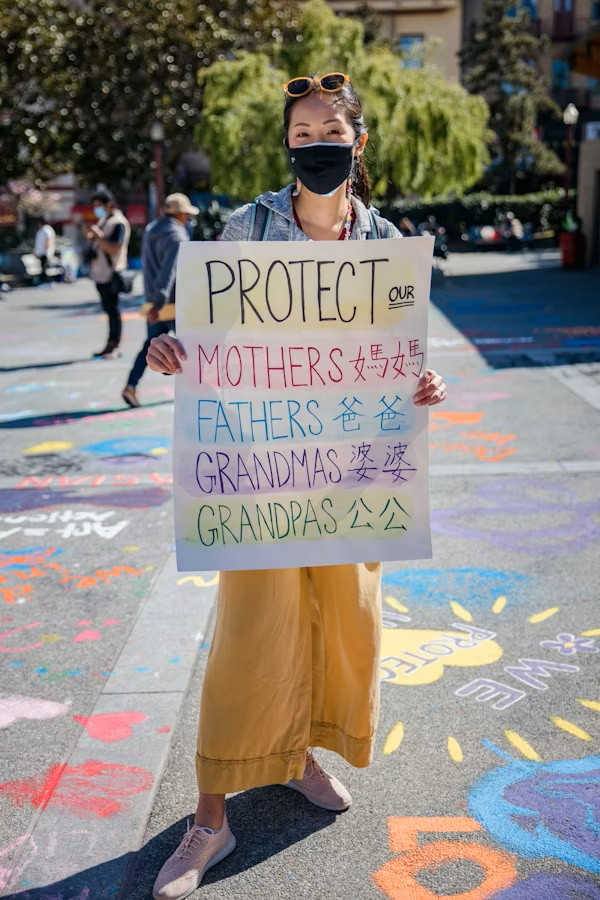 PROTECT OUR
MOTHERS 媽媽
FATHERS 爸爸
GRANDMAS 婆婆
GRANDPAS 公公
ASIAN
Act =
PROTEC
WE
LO